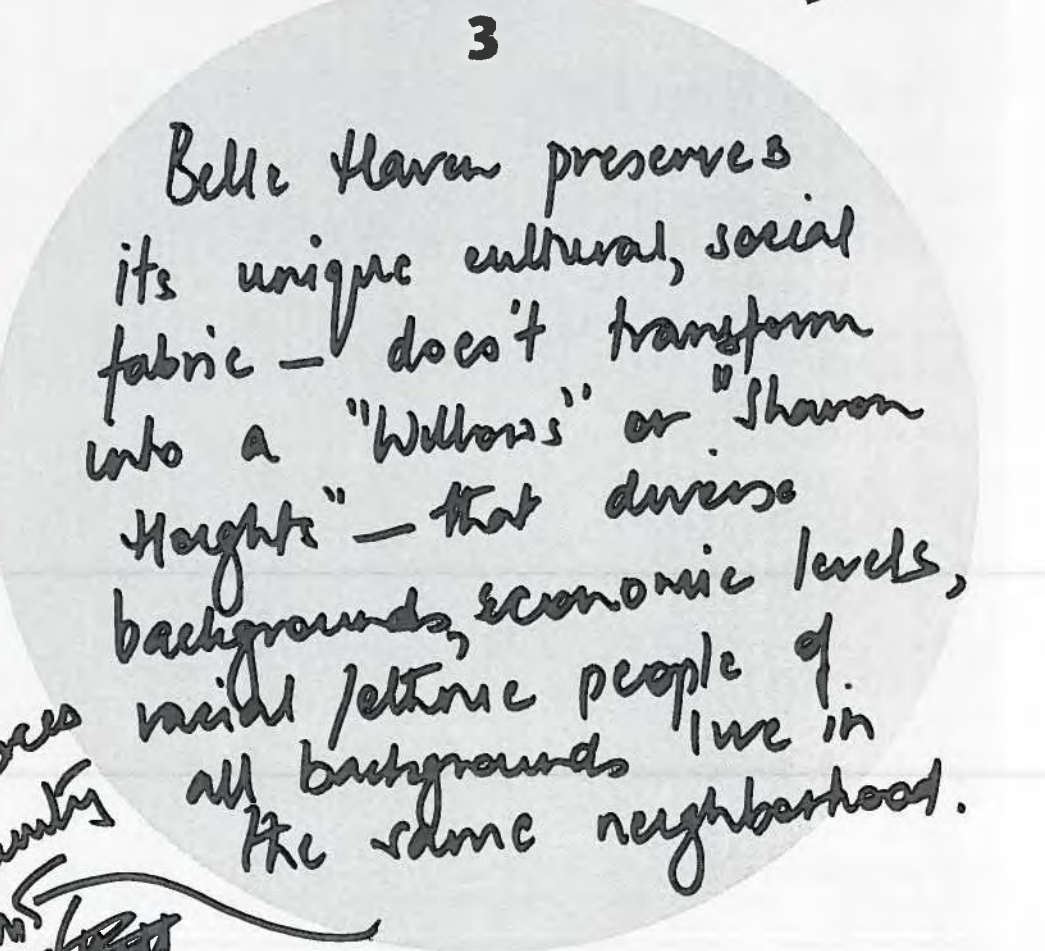 3
Belle Haven preserves
its unique cultural, social
fabric — does't transform
into a "Willows" or "Sharon
Heights" — that diverse
backgrounds, economic levels,
racial/ethnic people of
all backgrounds live in
the same neighborhood.